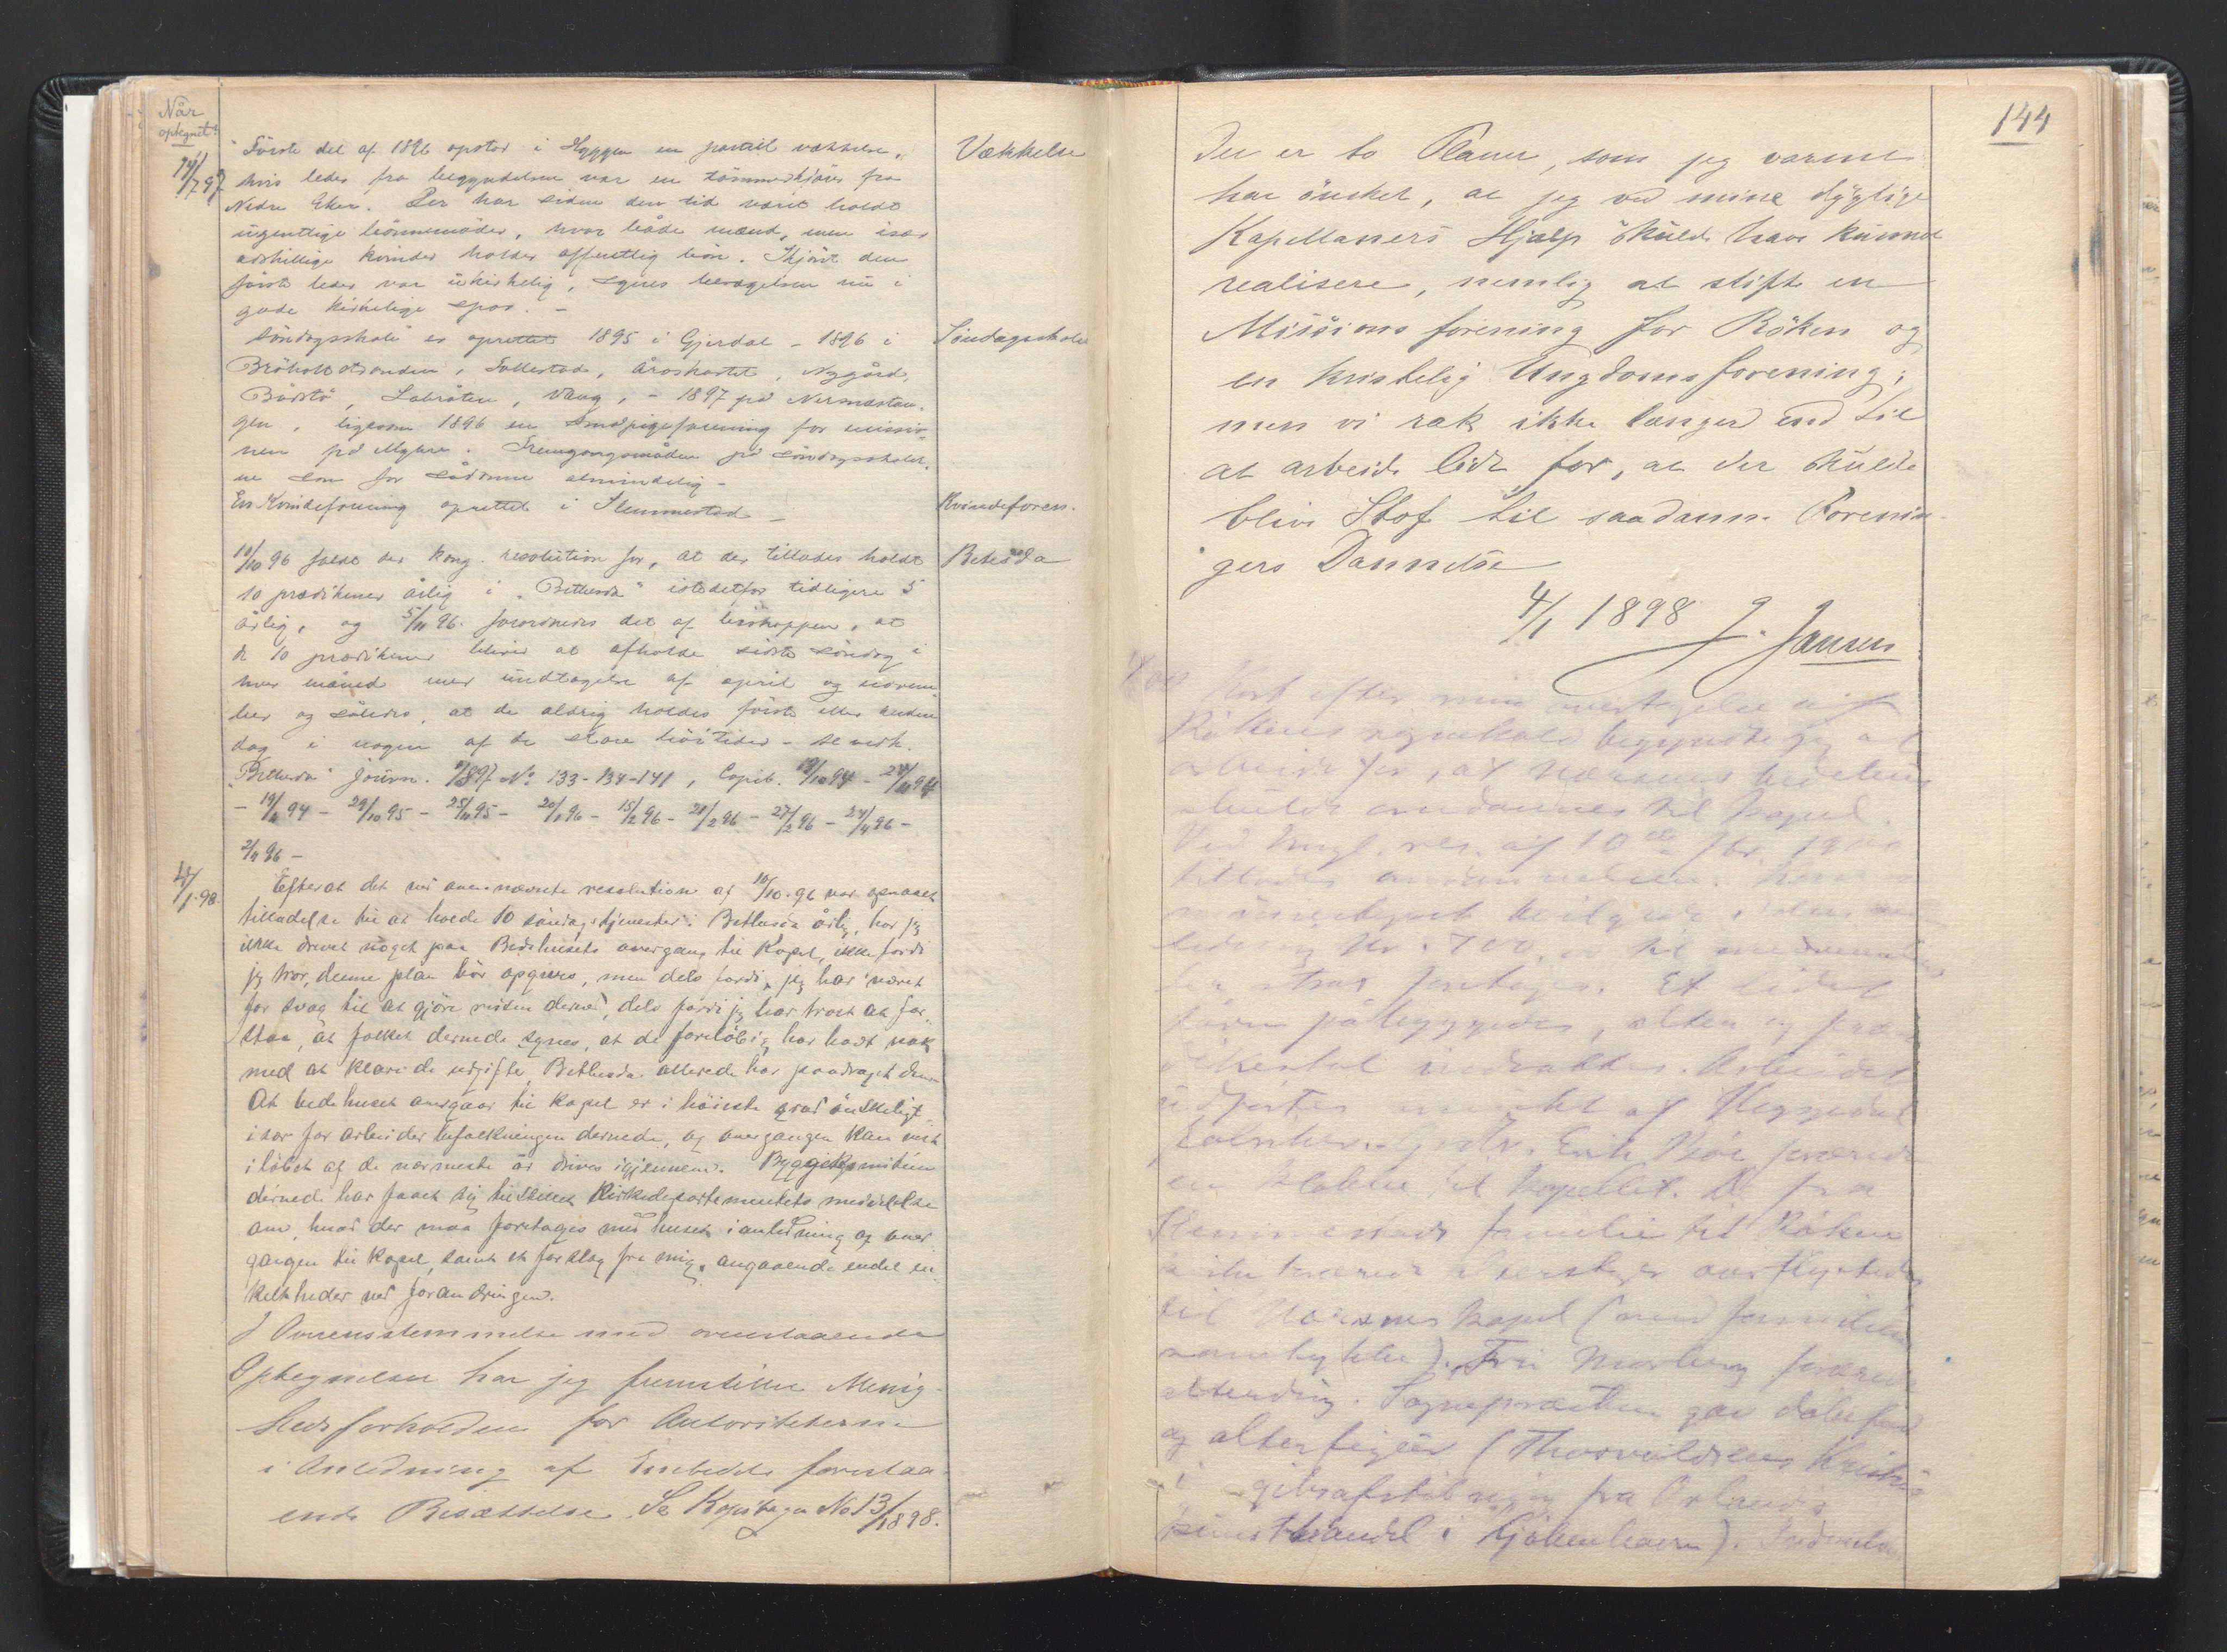 Når
optegnet?
14/7 97
Første del af 1896 opstod i Hyggen en partiel vækkelse,
hvis leder fra begyndelsen var en tømmerkjører fra
Nedre Eker. Der har siden den tid været holdt
ugentlige bønnemøder, hvor både mænd, men især
adskillige kvinder holder offentlig bøn. Skjønt den
første leder var ukirkelig, synes bevægelsen nu i
gode kirkelige spor. –
Vækkelse
Søndagsskole er oprettet 1895 i Gjerdal – 1896 i
Bröholtstranden, Toftestad, Åroskortet, Nygård,
Bårstö, Labråten, Vang, – 1897 på Nærsnestan-
gen, ligesom 1896 en småpigeforening for missio-
nen på Myhre. Fremgangsmåden på søndagsskoler-
ne som for sådanne almindelig –
Søndagsskole
En Kvindeforening oprettet i Slemmestad –
Kvindeforen.
10/10 96 faldt der kong. resolution for, at der tillades holdt
10 prædikener årlig i "Bethesda" istedetfor tidligere 5
årlig, og 5/11 96 forordnedes det af biskoppen, at
de 10 prædikener bliver at afholde sidste søndag i
hver måned med undtagelse af april og novem-
ber og således, at de aldrig holdes første eller anden
dag i nogen af de store høitider – se vedk.
"Bethesda" Journ. 1897 No 133-134-141, Copib. 13/10 94 – 24/10 94
– 19/11 94 – 29/10 95 – 25/11 95 – 20/1 96 – 15/2 96 – 21/2 96 – 27/2 96 – 24/4 96 –
2/11 96 –
Bethesda
4/1 98.
Efterat det ved ovennævnte resolution af 10/10 96 var opnaaet
tilladelse til at holde 10 søndagstjenester i Bethesda årlig, har jeg
ikke drevet noget paa Bedehusets overgang til Kapel, ikke fordi
jeg tror, denne plan bör opgives, men dels fordi jeg har været
for svag til at gjöre reisen derned, dels fordi jeg har trodt at for-
staa, at folket dernede synes, at de foreløbig har havt nok
med at klare de udgifter Bethesda allerede har paadraget dem.
At bedehuset overgaar til kapel er i høieste grad önskeligt
især for arbeiderbefolkningen dernede, og overgangen kan vist
i løbet af de nærmeste år drives igjennem. Byggekomiteen
dernede har faaet sig tilstillet Kirkedepartementets meddelelse
om, hvad der maa foretages med huset i anledning af over-
gangen til kapel, samt et forslag fra mig angaaende endel en-
keltheder ved forandringen.
I Overensstemmelse med ovenstaaende
Optegnelser har jeg fremstillet Menig-
hedsforholdene for Autoriteterne
i Anledning af Embedets forestaa-
ende Besættelse. Se Kopibogen No 13/1898.
144
Der er to Planer, som jeg varmt
har önsket, at jeg ved mine dygtige
Kapellaners Hjælp skulde have kunnet
realisere, nemlig at stifte en
Missionsforening for Röken og
en kristelig Ungdomsforening;
men vi rak ikke længer end til
at arbeide lidt for, at der skulde
blive Stof til saadanne Forenin-
gers Dannelse
4/1 1898 J. Jansen
Kort efter min overtagelse af
Rökens sognekald begyndte jeg at
arbeide for, at Nærsnes bedehus
skulde omdannes til kapel.
Ved kngl. res. af 10de 1900
tillodes
Kr. 700,00 til
straks foretages. Et lidet
tårn påbyggedes, alter og præ-
dikestol indsattes. Arbeidet
udførtes af Heggedal
Erik Böe forærede
en klokke til kapellet. De fra
Slemmestads familie til Röken
overflyttedes
til Nærsnes kapel (med familiens
samtykke). Fru forærede
alterdug. Sognepræsten gav döbefad
og alterfigur (Thorvaldsens Kristus
i gibsafstöbning fra
kunsthandel i Kjöbenhavn).